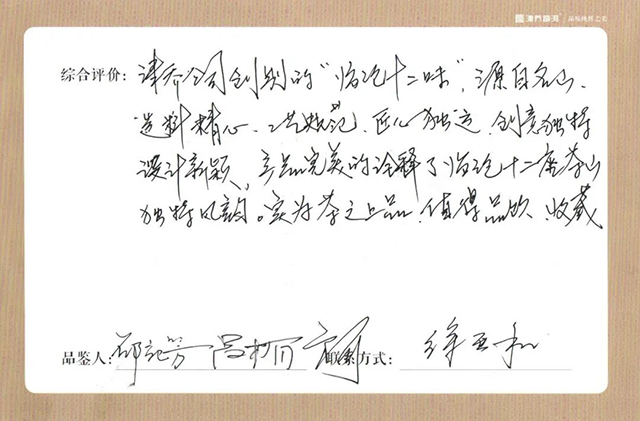 津乔普洱 品味纯粹之美
综合评价：津乔公司创制的“临沧十二味”，源自名山、
选料精心、工艺规范、匠心独运、创意独特
设计新颖、产品完美的诠释了临沧十二座茶山
独特风韵。实为茶之上品，值得品饮、收藏
品鉴人： 联系方式： 徐亚和